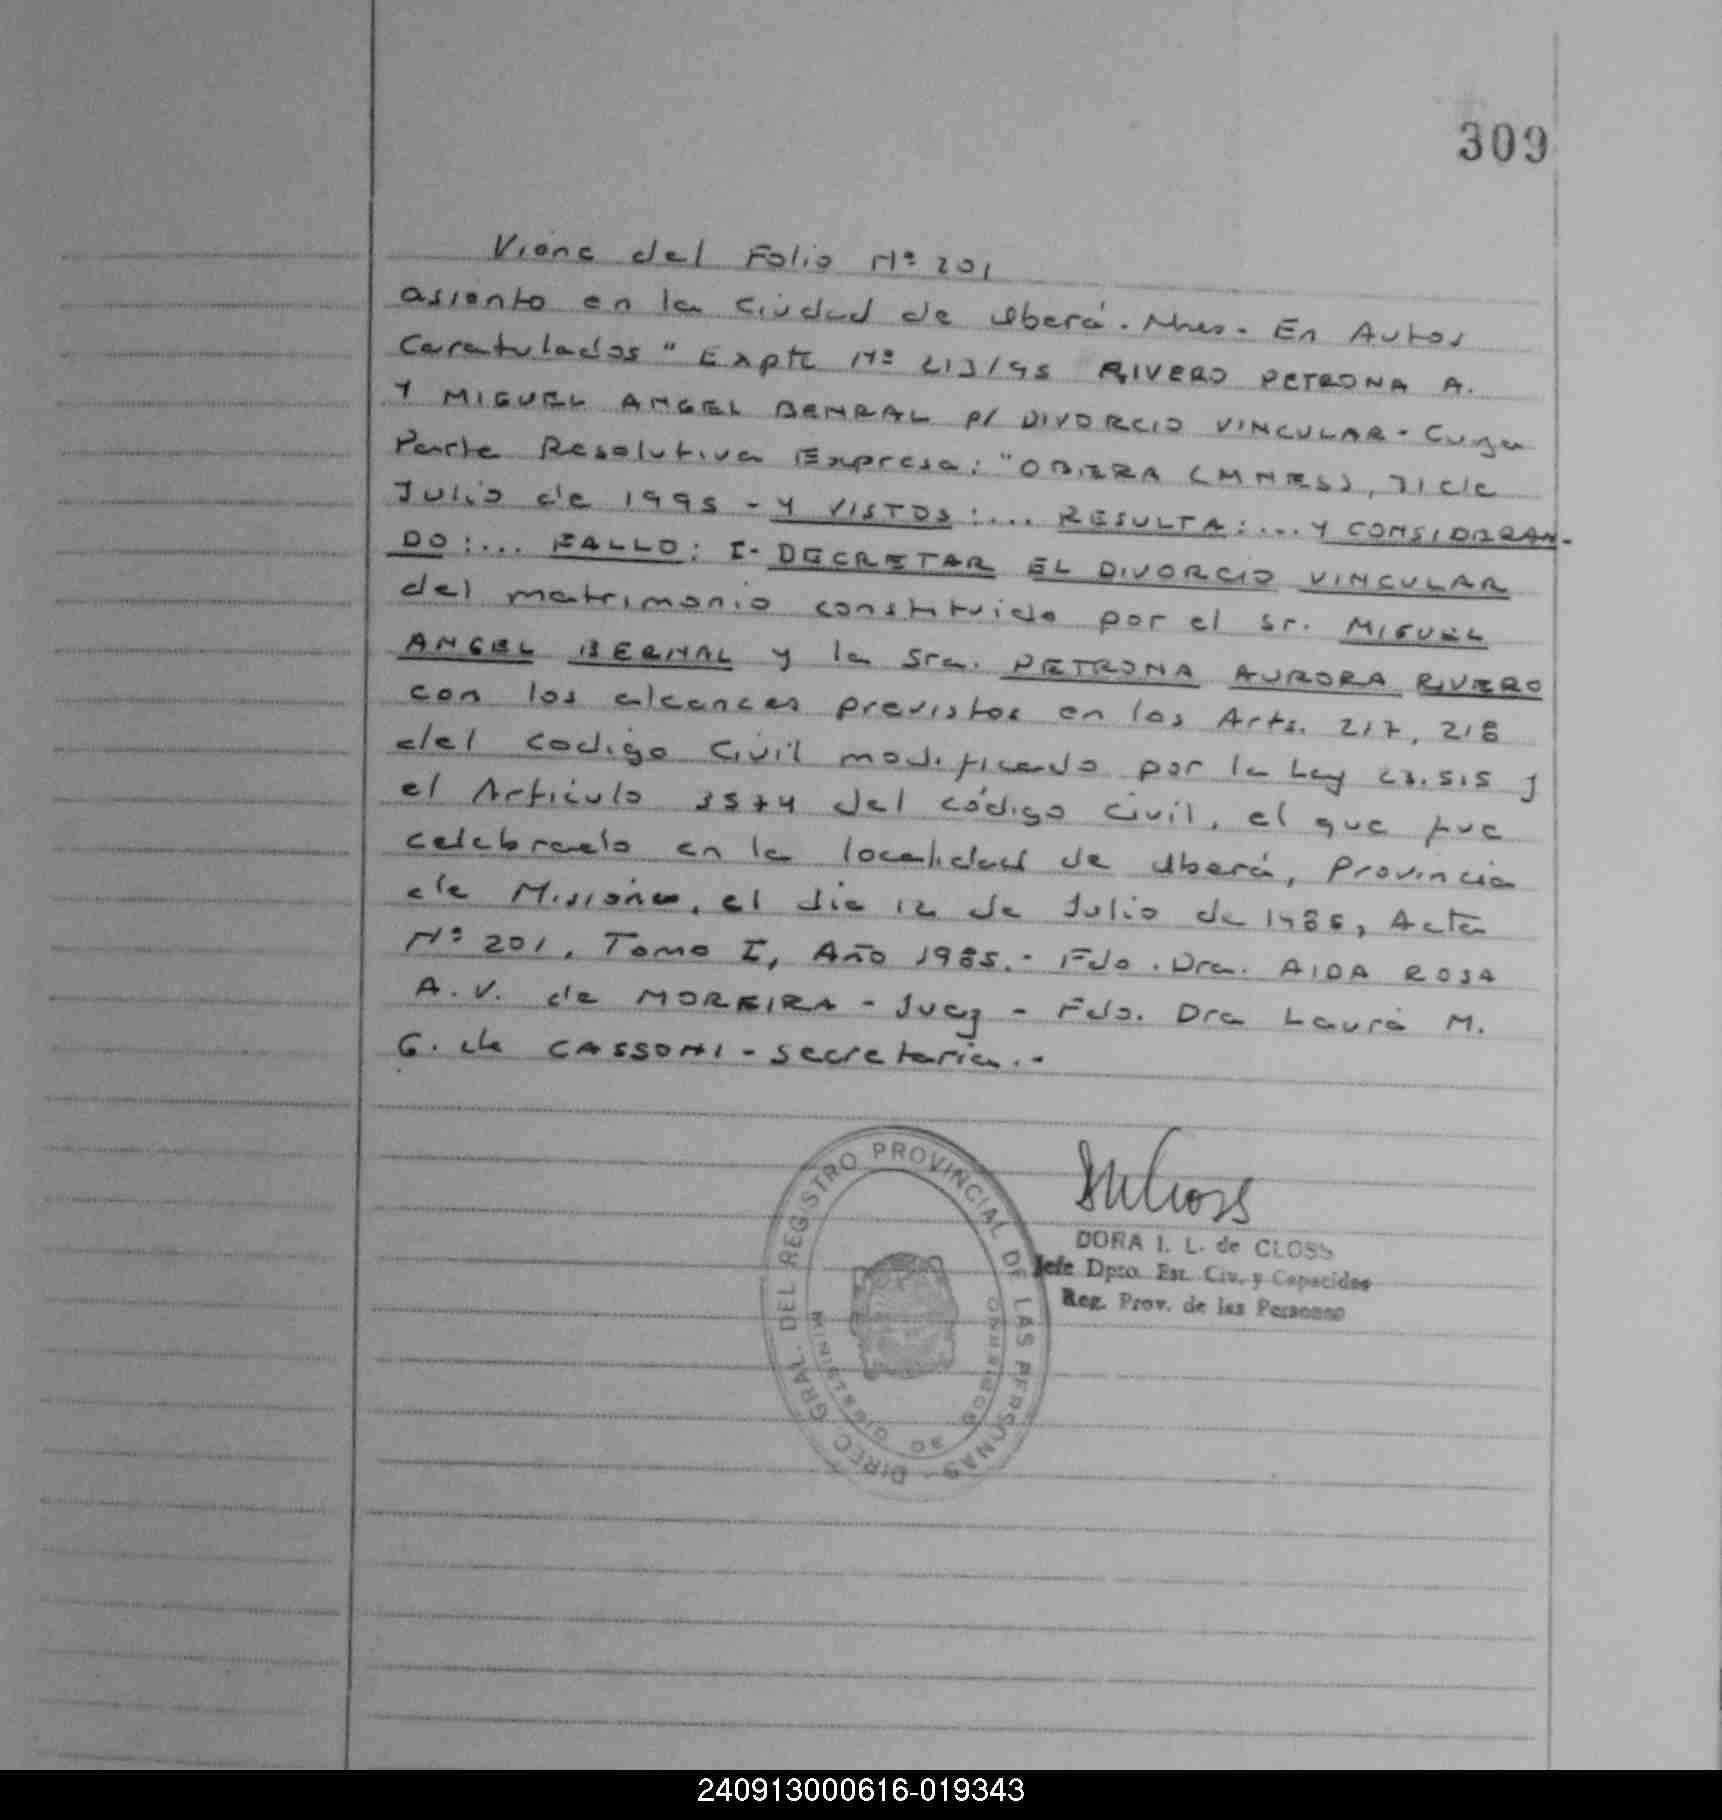 309
Viene del Folio Nº 201
asiento en la Ciudad de Oberá. Mnes. En Autos
Caratulados "Expte Nº 213/95 RIVERO PETRONA A.
Y MIGUEL ANGEL BENRAL P/ DIVORCIO VINCULAR - Cuya
Parte Resolutiva Expresa: "OBERA (MNES), 31 de
Julio de 1995 - Y VISTOS:... RESULTA:... Y CONSIDERAN-
DO:... FALLO: I- DECRETAR EL DIVORCIO VINCULAR
del matrimonio constituido por el Sr. MIGUEL
ANGEL BERNAL y la Sra. PETRONA AURORA RIVERO
con los alcances previstos en los Arts. 217, 218
del codigo Civil modificado por la Ley 23.515 y
el Artículo 3574 del código Civil, el que fue
celebrado en la localidad de Oberá, Provincia
de Misiones, el dia 12 de Julio de 1985, Acta
Nº 201, Tomo I, Año 1985.- Fdo. Dra. AIDA ROSA
A. V. de MOREIRA - Juez - Fdo. Dra Laura M.
G. de CASSONI - Secretaria.-
DIREC. GRAL. DEL REGISTRO PROVINCIAL DE LAS PERSONAS -
MINISTERIO DE GOBIERNO
DORA I. L. de CLOSS
Jefe Dpto. Est. Civ. y Capacidad
Reg. Prov. de las Personas
240913000616-019343